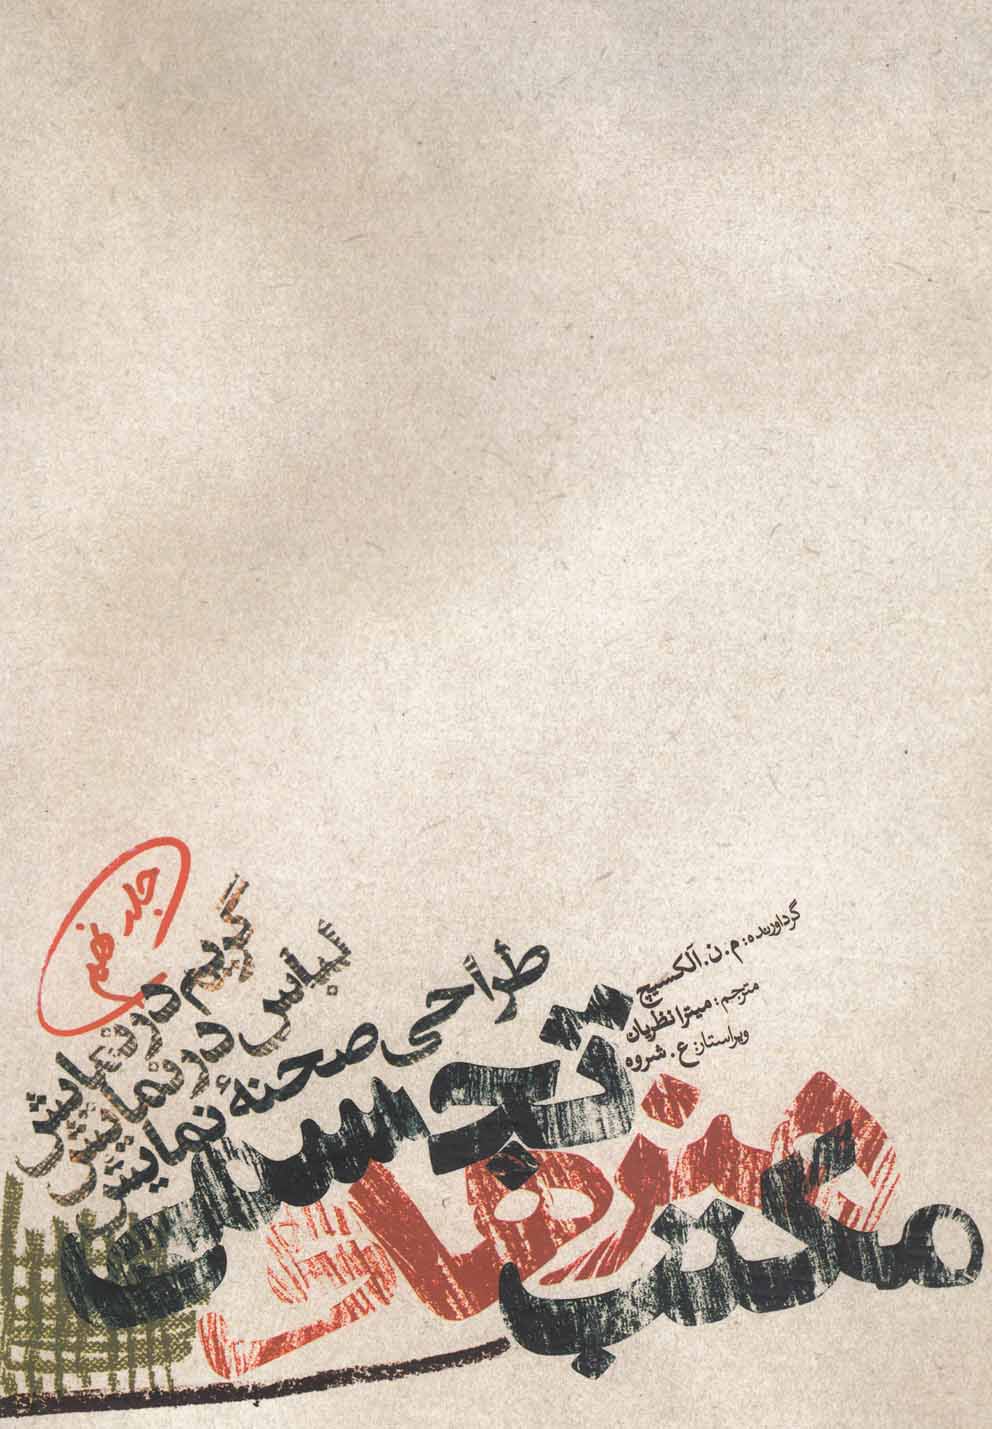 گردآورنده: م. ن. آلکسیچ
مترجم: میترا نظریان
ویراستار: ع. شروه
مکتب
هنرهای
تجسمی
طراحی صحنهٔ نمایش
لباس در نمایش
گریم در نمایش
جلد نهم